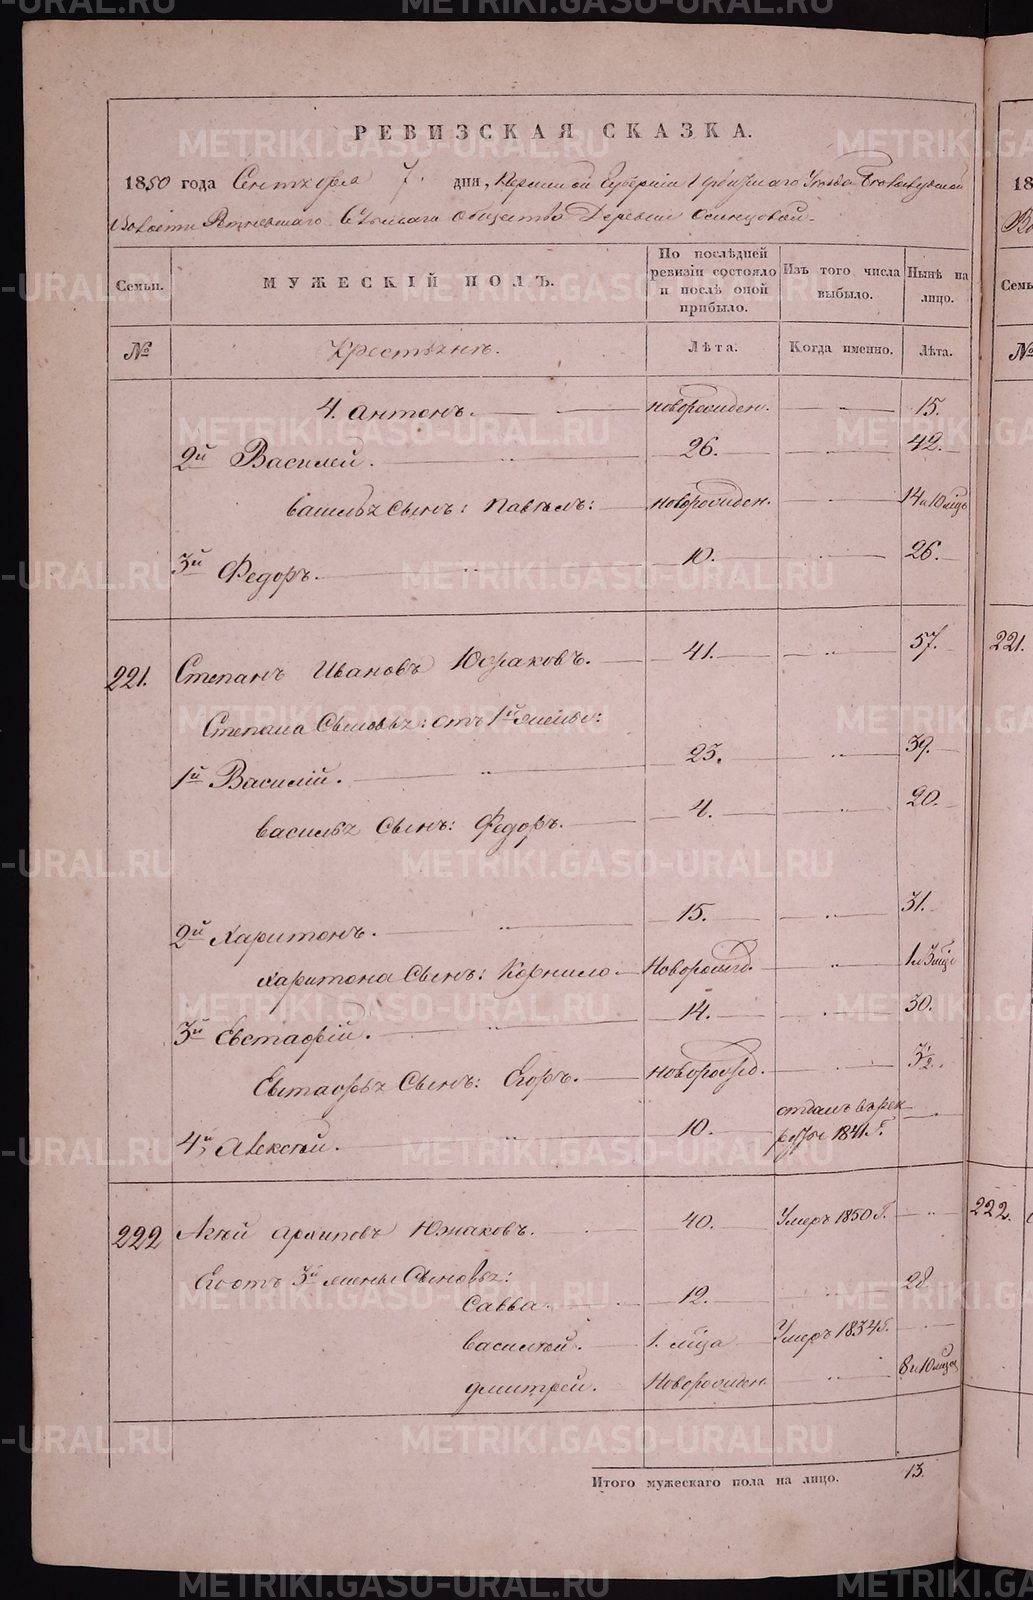 РЕВИЗСКАЯ СКАЗКА.
1850 года Сентября 7. дня, Пермской Губернiи Ирбитскаго Уезда
Волости Сельскаго Общества Деревни Осинцовой.
Семьи.
МУЖЕСКIЙ ПОЛЪ.
По послѣдней ревизiи состояло и послѣ оной прибыло.
Изъ того числа выбыло.
Нынѣ на лицо.
№
Крестьянъ.
Лѣта.
Когда именно.
Лѣта.
4. Антонъ. новорожден. 15.
2й Василей. 26. 42.
Васильѧ Сынъ: Павелъ: новорожден. 14 и 10 мѣсц
3й Федоръ. 10. 26.
221. Степанъ Ивановъ Южаковъ. 41. 57.
Степана Сыновья: отъ 1й жены:
1й Василiй. 23. 39.
Василья Сынъ: Федоръ. 4. 20.
2й Харитонъ. 15. 31.
Харитона Сынъ: Корнило Новорожд. 1 и 3 мѣсц
3й Евстафiй. 14. 30.
Евстафья Сынъ: Егоръ. новорожд. 3 1/2.
4й Алексѣй. 10. отданъ въ рек
руты 1841 Г.
222 Архиповъ Южаковъ. 40. Умеръ 1850 Г.
Его отъ 3й жены Сыновья:
Савва. 12. 28
Василѣй. 1. мѣца Умеръ 1834 Г.
Дмитрей. Новорожден. 8 и 10 мѣсц
Итого мужескаго пола на лицо. 13.
221.
222.
18
Семьи
№
METRIKI.GASO-URAL.RU